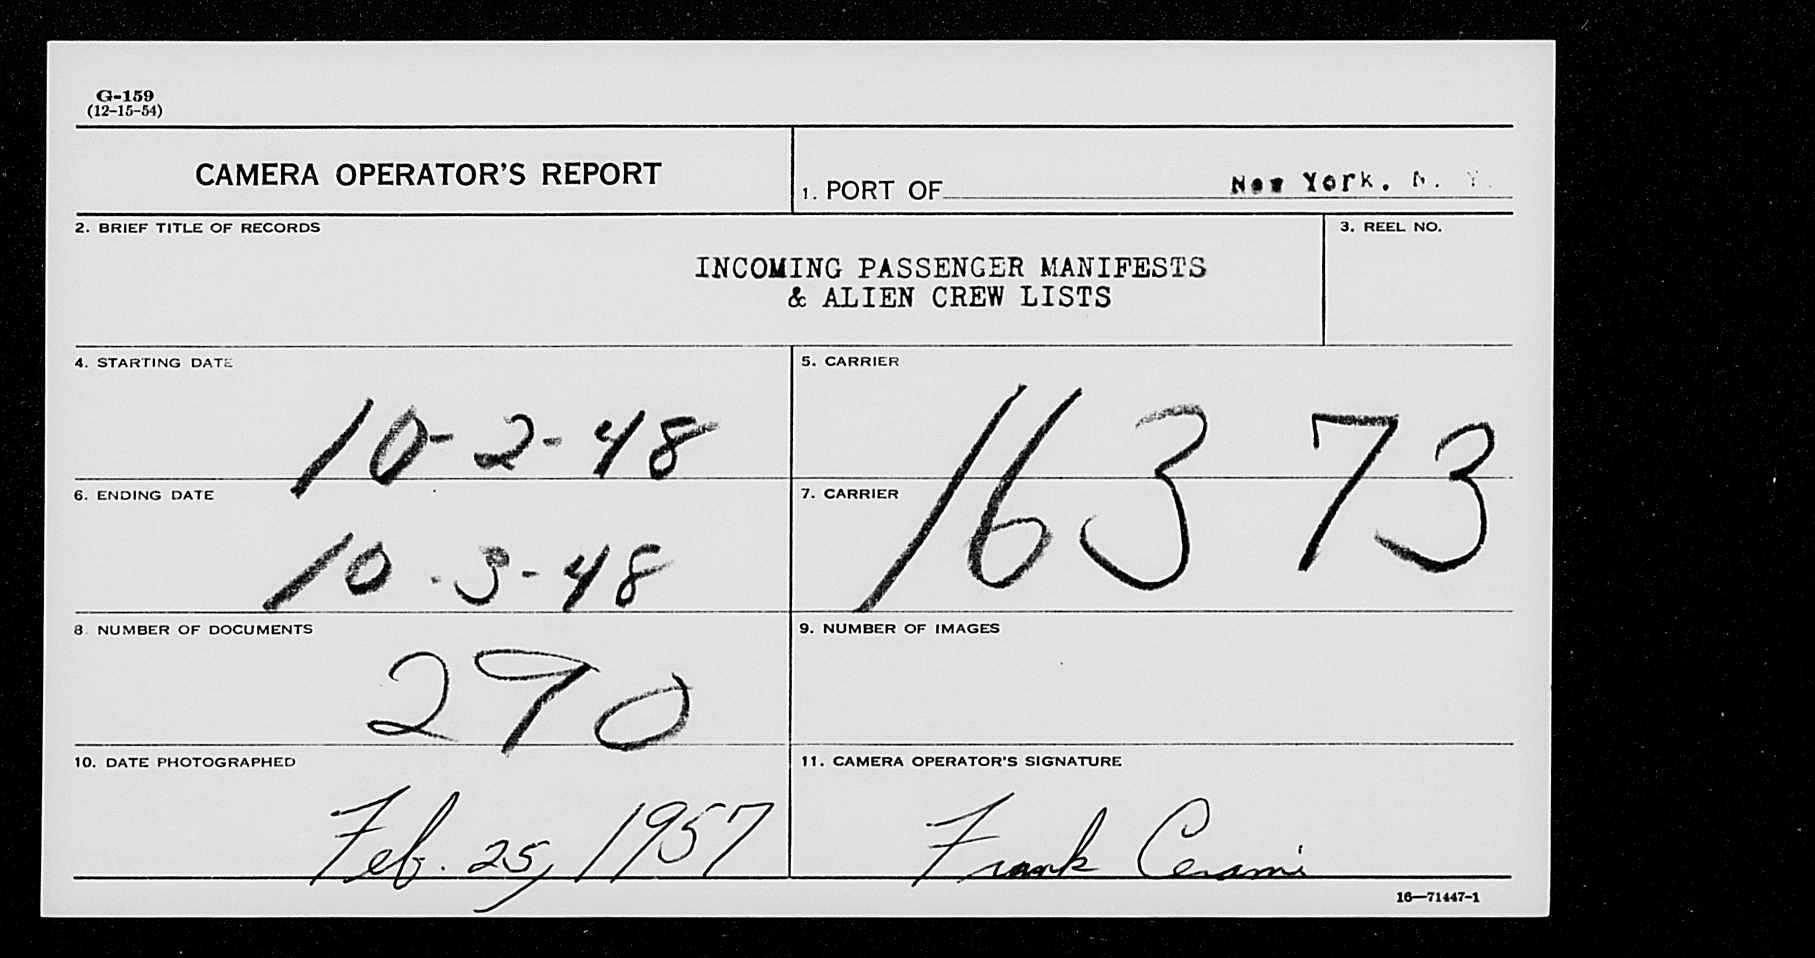 G-159
(12-15-54)
CAMERA OPERATOR'S REPORT
1. PORT OF New York, N. Y.
2. BRIEF TITLE OF RECORDS
3. REEL NO.
INCOMING PASSENGER MANIFESTS
& ALIEN CREW LISTS
4. STARTING DATE
10-2-48
5. CARRIER
6. ENDING DATE
10-3-48
7. CARRIER
16373
8. NUMBER OF DOCUMENTS
290
9. NUMBER OF IMAGES
10. DATE PHOTOGRAPHED
Feb. 25, 1957
11. CAMERA OPERATOR'S SIGNATURE
Frank Cerami
16—71447-1